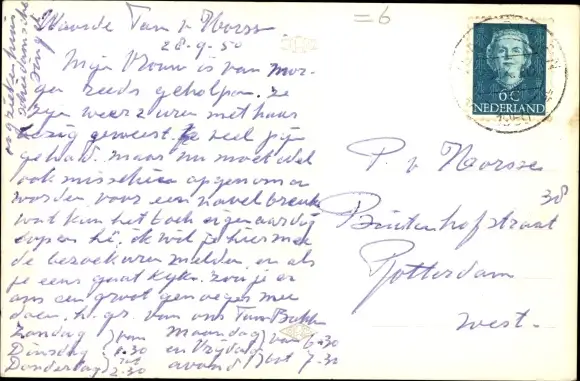 Waarde Tam v Norss
28-9-50
Mijn Vrouw is van mor-
gen reeds geholpen. ze
zijn weer 2 uren met haar
bezig geweest, ze veel pijn
gehad. maar nu moet
ook misschien opgenomen
worden voor een navel breuk
wat kan het toch eigenaardig
lopen hè, ik wil je hiermee
de bezoekuren melden en als
je eens gaat kijken zou je er
ons een groot genoegen mee
doen. h. gr. van ons Tam
Zondag van
Dinsdag 1.30
Donderdag tot 2.30
Maandag van 6-30
en Vrijdag
avond tot 7-30
ziekenhuis
Schiedamsche
singel
= 6
6 C
NEDERLAND
P. v Norsse
Buitenhofstraat 38
Rotterdam
West.